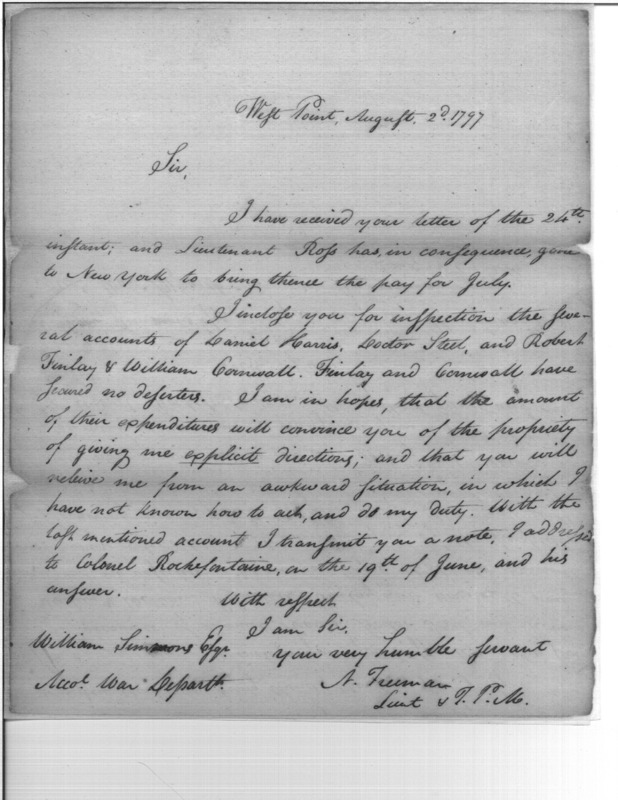 West Point, August. 2d. 1797
Sir,
I have received your letter of the 24th.
instant; and Lieutenant Ross has, in consequence, gone
to New York to bring thence the pay for July.
I inclose you for inspection the seve-
ral accounts of Daniel Harris, Doctor Steel, and Robert
Finlay & William Cornwall. Finlay and Cornwall have
secured no deserters. I am in hopes, that the amount
of their expenditures will convince you of the propriety
of giving me explicit directions; and that you will
relieve me from an awkward situation, in which I
have not known how to act, and do my duty. With the
last mentioned account I transmit you a note, I addressed
to Colonel Rochefontaine, on the 19th. of June, and his
answer.
With respect
I am Sir,
your very humble servant
William Simmons Esqr.
A. Freeman
Accot. War Departt.
Lieut & T. P. M.